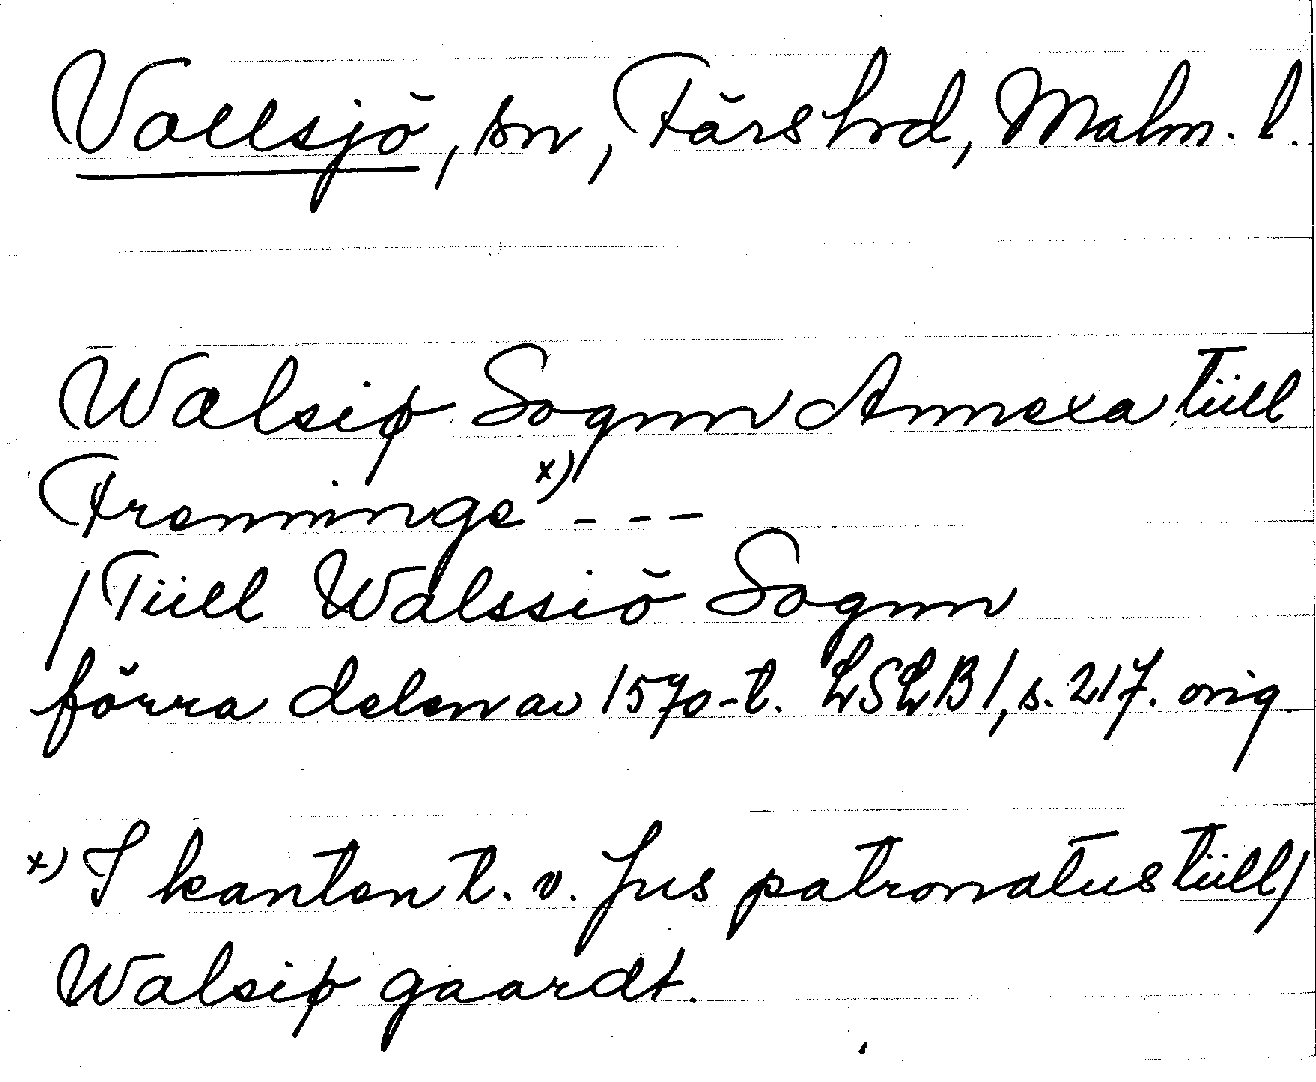 Vallsjö, sn, Färs hd, Malm. l.
Walsiø Sognn Annexa tiill
Frenninge x) - - -
/Tiill Walssiö Sognn
förra delen av 1570-t. LSLB 1, s. 217. orig.
x) I kanten t. v. Jus patronatus tiill/
Walsiø gaardt.